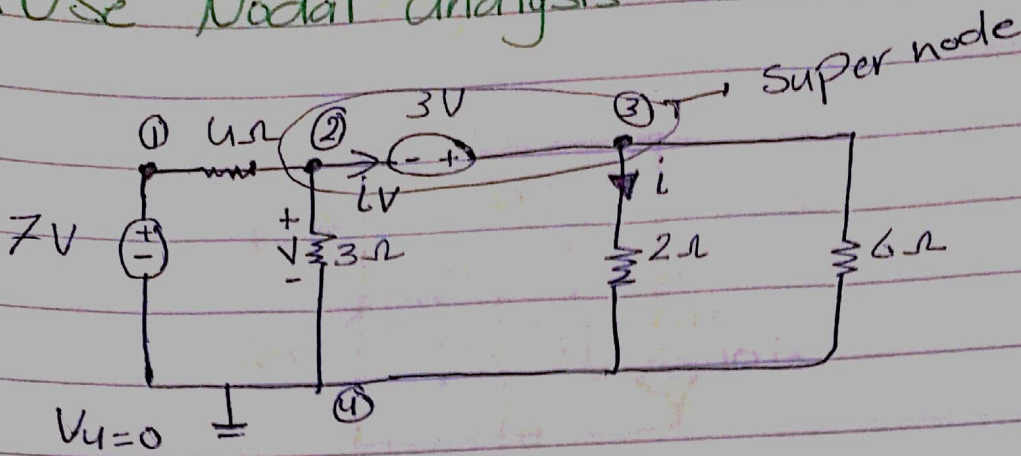 Use Nodal analysis
super node
① 4Ω ② 3V ③
- +
iv i
7V + - + V - 3Ω 2Ω 6Ω
④
V4=0